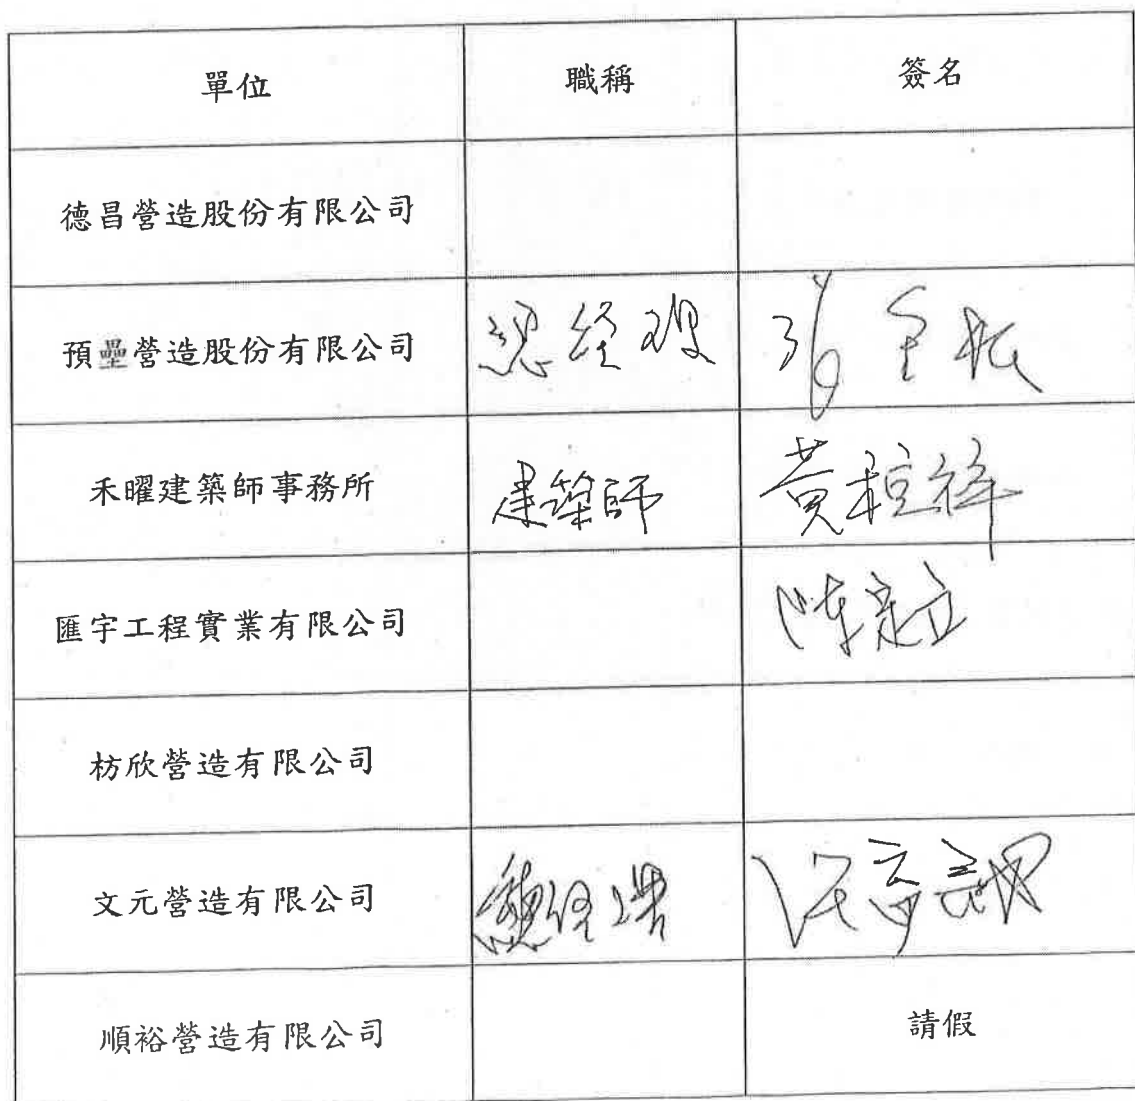 單位 職稱 簽名
德昌營造股份有限公司
預壘營造股份有限公司 總經理
禾曜建築師事務所 建築師 黃桓祥
匯宇工程實業有限公司 陳定立
枋欣營造有限公司
文元營造有限公司 總經理
順裕營造有限公司 請假